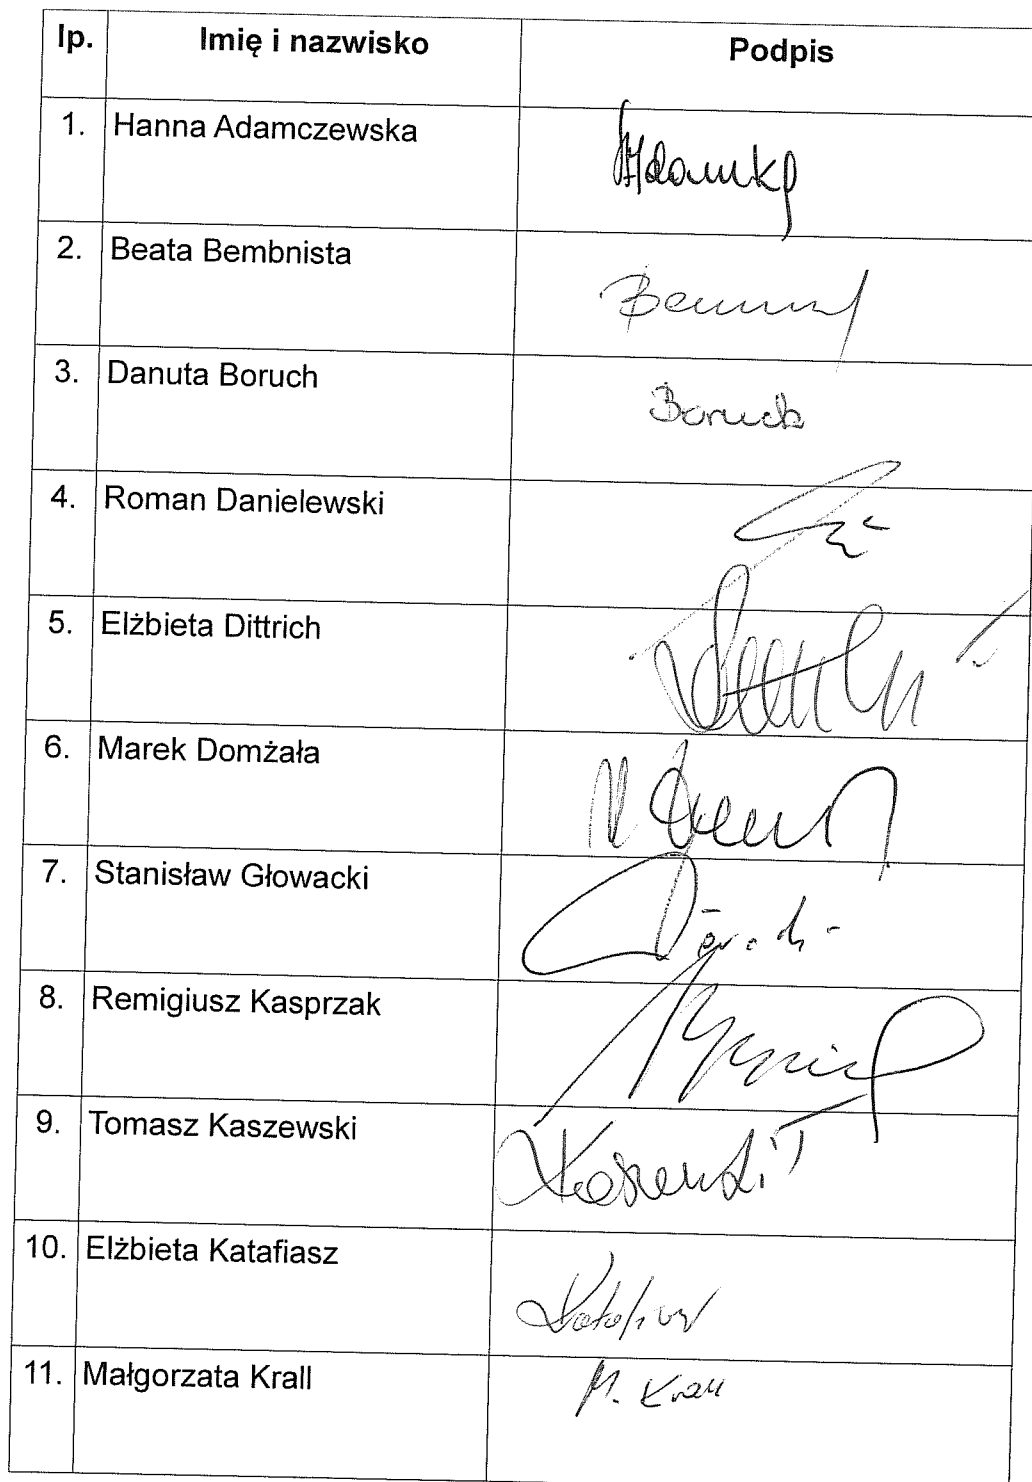 lp. Imię i nazwisko Podpis
1. Hanna Adamczewska
2. Beata Bembnista
3. Danuta Boruch Boruch
4. Roman Danielewski
5. Elżbieta Dittrich
6. Marek Domżała
7. Stanisław Głowacki
8. Remigiusz Kasprzak
9. Tomasz Kaszewski
10. Elżbieta Katafiasz
11. Małgorzata Krall M. Krall